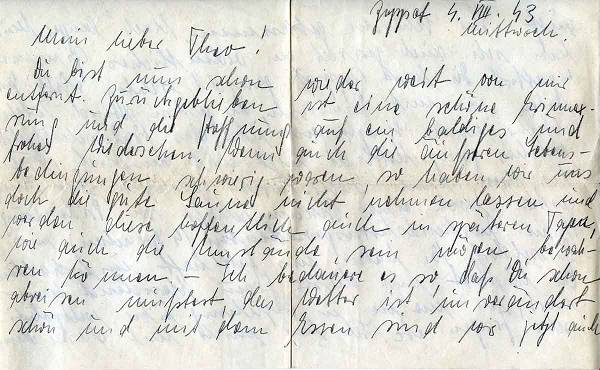 Zoppot 4. VIII. 43
Mittwoch.
Mein lieber Theo!
Du bist nun schon wieder weit von mir
entfernt. Zurückgeblieben ist eine schöne Erinner-
rung und die Hoffnung auf ein baldiges und
frohes Wiedersehen. Wenn auch die äußeren Lebens-
bedingungen schwierig waren, so haben wir uns
doch die gute Laune nicht nehmen lassen und
werden diese hoffentlich auch in späteren Tagen,
wie auch die Umstände sein mögen, bewah-
ren können. – Ich bedauere es so, daß Du schon
abreisen mußtest, das Wetter ist unverändert
schön und mit dem Essen sind wir jetzt auch